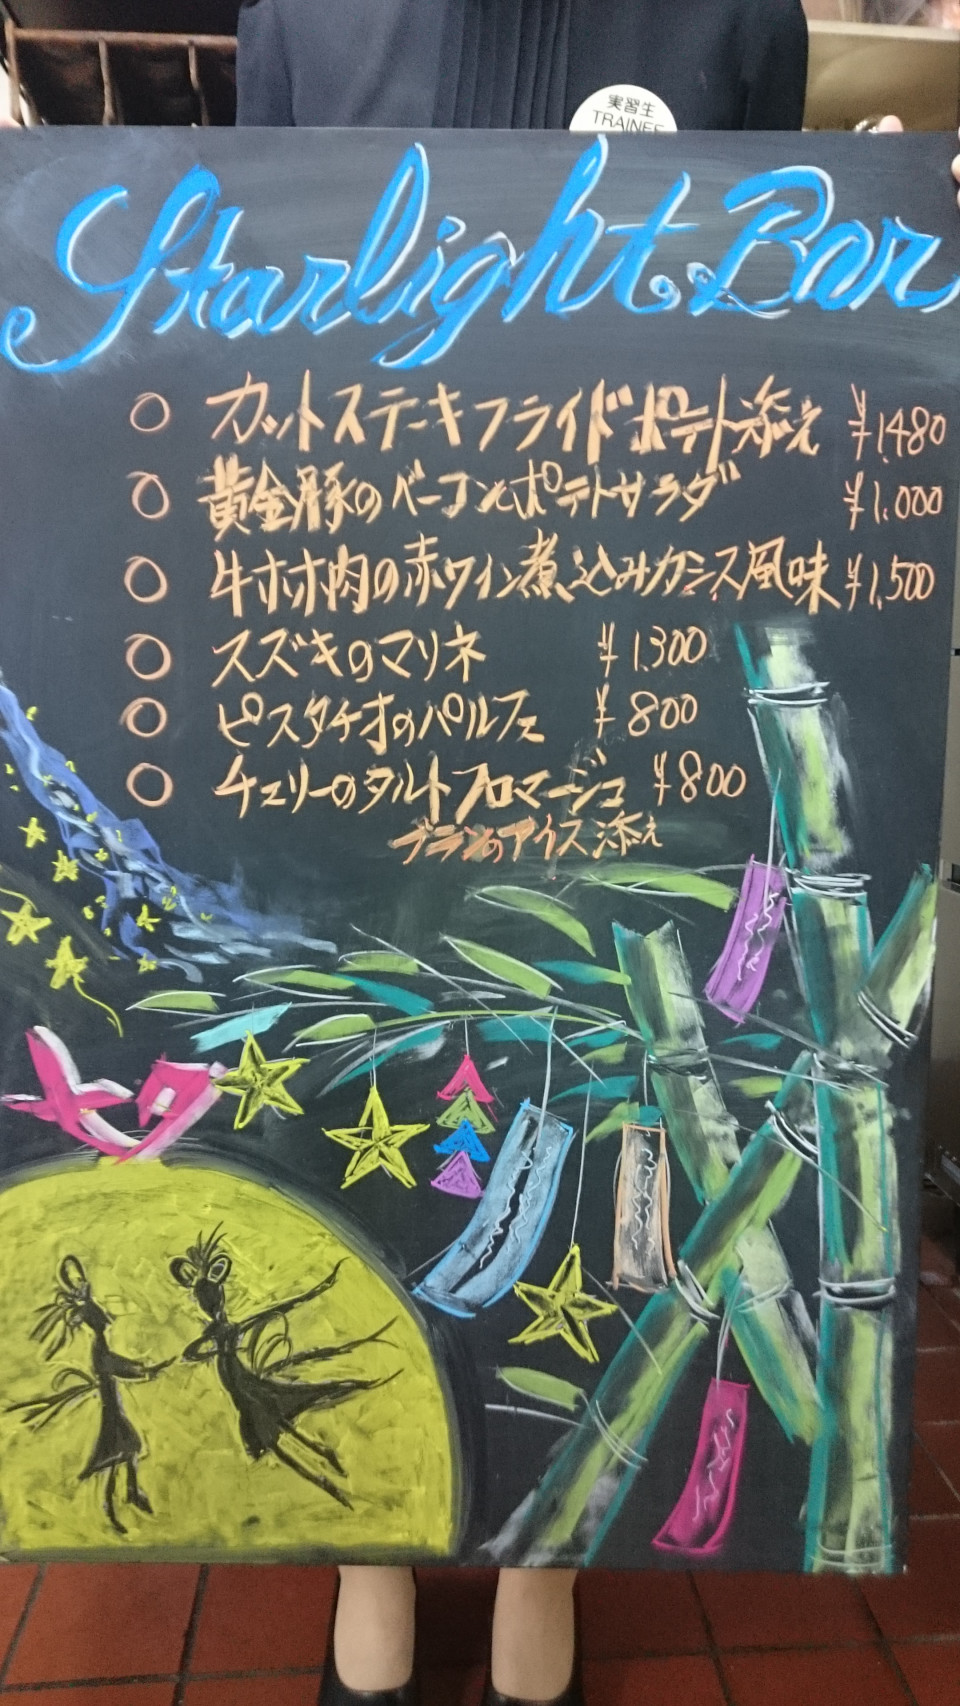 実習生
TRAINEE
Starlight Bar
○ カットステーキフライドポテト添え ¥1,480
○ 黄金豚のベーコンとポテトサラダ ¥1,000
○ 牛ホホ肉の赤ワイン煮込みカシス風味 ¥1,500
○ スズキのマリネ ¥1,300
○ ピスタチオのパルフェ ¥800
○ チェリーのタルトフロマージュ ¥800
ブランのアイス添え